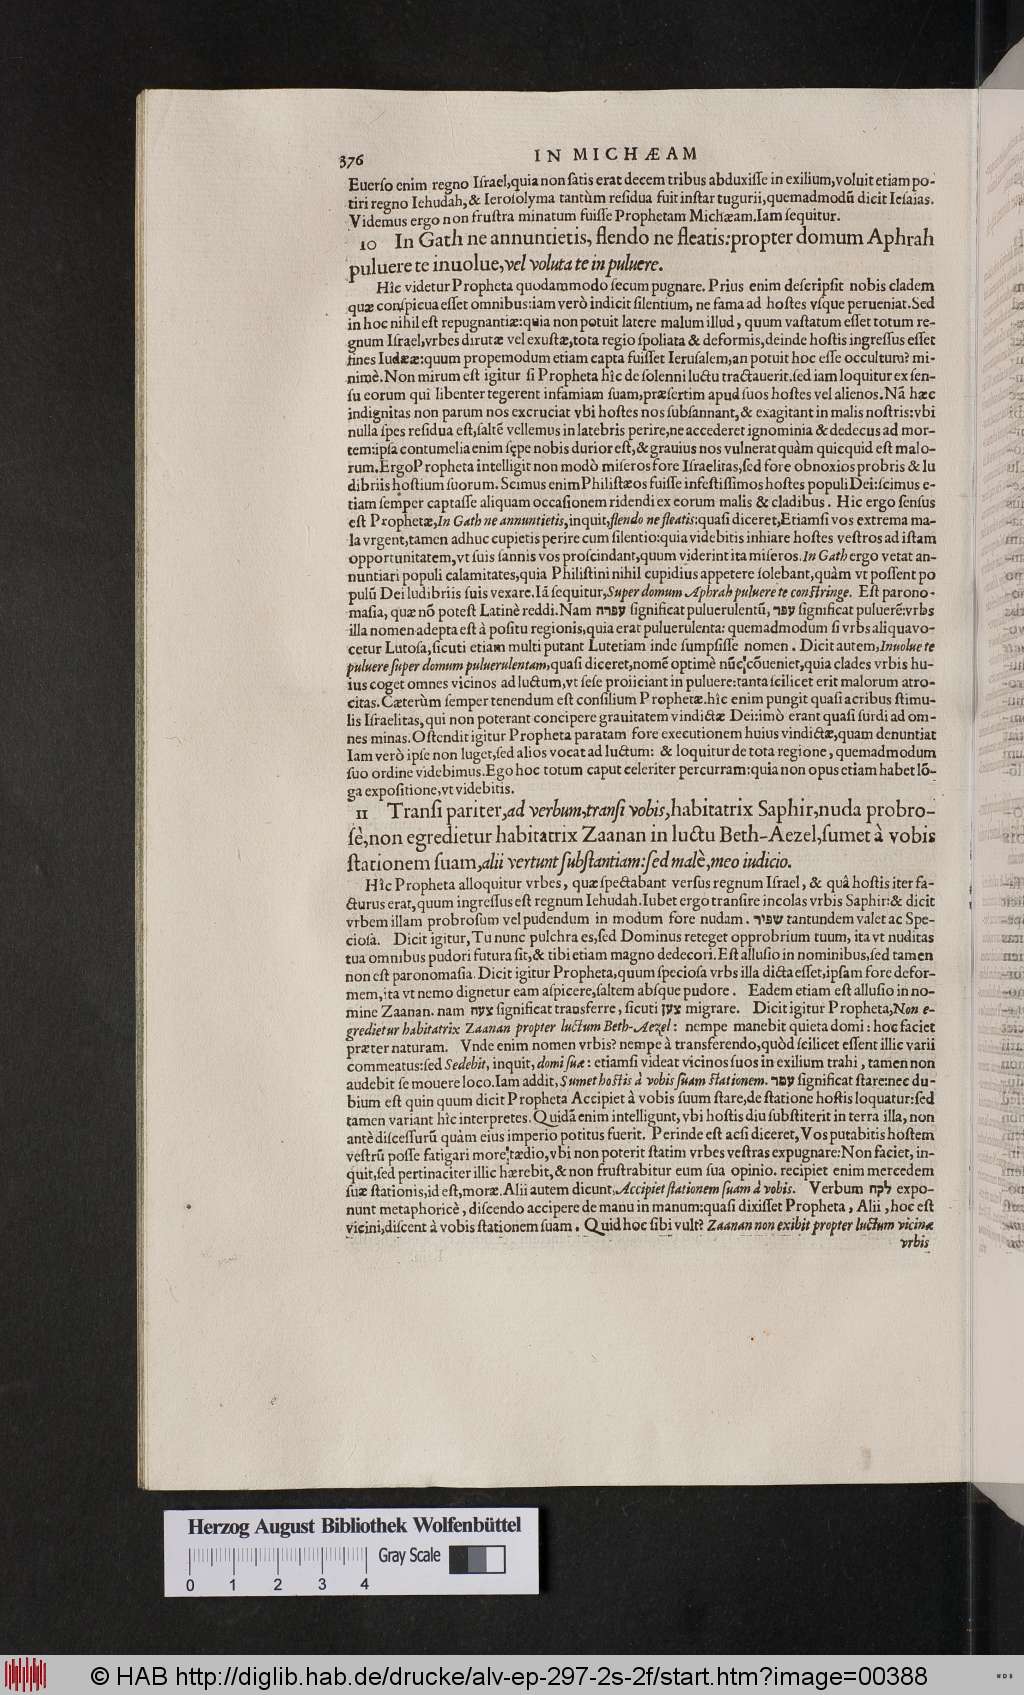 376 IN MICHÆAM
Euerſo enim regno Iſrael,quia non ſatis erat decem tribus abduxiſſe in exilium,voluit etiam po-
tiri regno Iehudah,& Ieroſolyma tantùm reſidua fuit inſtar tugurii,quemadmodũ dicit Ieſaias.
Videmus ergo non fruſtra minatum fuiſſe Prophetam Michæam.Iam ſequitur.
10 In Gath ne annuntietis, flendo ne fleatis:propter domum Aphrah
puluere te inuolue,vel voluta te in puluere.
Hîc videtur Propheta quodammodo ſecum pugnare. Prius enim deſcripſit nobis cladem
quæ conſpicua eſſet omnibus:iam verò indicit ſilentium, ne fama ad hoſtes vſque perueniat.Sed
in hoc nihil eſt repugnantiæ:quia non potuit latere malum illud, quum vaſtatum eſſet totum re-
gnum Iſrael,vrbes dirutæ vel exuſtæ,tota regio ſpoliata & deformis,deinde hoſtis ingreſſus eſſet
fines Iudææ:quum propemodum etiam capta fuiſſet Ieruſalem,an potuit hoc eſſe occultum? mi-
nimè.Non mirum eſt igitur ſi Propheta hîc de ſolenni luctu tractauerit.ſed iam loquitur ex ſen-
ſu eorum qui libenter tegerent infamiam ſuam,præſertim apud ſuos hoſtes vel alienos.Nã hæc
indignitas non parum nos excruciat vbi hoſtes nos ſubſannant,& exagitant in malis noſtris:vbi
nulla ſpes reſidua eſt,ſaltẽ vellemus in latebris perire,ne accederet ignominia & dedecus ad mor-
tem:ipſa contumelia enim ſępe nobis durior eſt,& grauius nos vulnerat quàm quicquid eſt malo-
rum.Ergo Propheta intelligit non modò miſeros fore Iſraelitas,ſed fore obnoxios probris & lu
dibriis hoſtium ſuorum.Scimus enim Philiſtæos fuiſſe infeſtiſſimos hoſtes populi Dei:ſcimus e-
tiam ſemper captaſſe aliquam occaſionem ridendi ex eorum malis & cladibus. Hic ergo ſenſus
eſt Prophetæ,In Gath ne annuntietis,inquit,flendo ne fleatis:quaſi diceret,Etiamſi vos extrema ma-
la vrgent,tamen adhuc cupietis perire cum ſilentio:quia videbitis inhiare hoſtes veſtros ad iſtam
opportunitatem,vt ſuis ſannis vos proſcindant,quum viderint ita miſeros.In Gath ergo vetat an-
nuntiari populi calamitates,quia Philiſtini nihil cupidius appetere ſolebant,quàm vt poſſent po
pulũ Dei ludibriis ſuis vexare.Iã ſequitur,Super domum Aphrah puluere te conſtringe. Eſt parono-
maſia, quæ nõ poteſt Latinè reddi.Nam עפרה ſignificat puluerulentũ, עפר ſignificat puluerẽ:vrbs
illa nomen adepta eſt à poſitu regionis,quia erat puluerulenta: quemadmodum ſi vrbs aliqua vo-
cetur Lutoſa,ſicuti etiam multi putant Lutetiam inde ſumpſiſſe nomen. Dicit autem,Inuolue te
puluere ſuper domum puluerulentam,quaſi diceret,nomẽ optimè nũc cõueniet,quia clades vrbis hu-
ius coget omnes vicinos ad luctum,vt ſeſe proiiciant in puluere:tanta ſcilicet erit malorum atro-
citas.Cæterùm ſemper tenendum eſt conſilium Prophetæ.hîc enim pungit quaſi acribus ſtimu-
lis Iſraelitas,qui non poterant concipere grauitatem vindictæ Dei:imò erant quaſi ſurdi ad om-
nes minas.Oſtendit igitur Propheta paratam fore executionem huius vindictæ,quam denuntiat
Iam verò ipſe non luget,ſed alios vocat ad luctum: & loquitur de tota regione, quemadmodum
ſuo ordine videbimus.Ego hoc totum caput celeriter percurram:quia non opus etiam habet lõ-
ga expoſitione,vt videbitis.
11 Tranſi pariter,ad verbum,tranſi vobis,habitatrix Saphir,nuda probro-
ſè,non egredietur habitatrix Zaanan in luctu Beth-Aezel,ſumet à vobis
ſtationem ſuam,alii vertunt ſubſtantiam:ſed malè,meo iudicio.
Hîc Propheta alloquitur vrbes, quæ ſpectabant verſus regnum Iſrael, & quâ hoſtis iter fa-
cturus erat,quum ingreſſus eſt regnum Iehudah.Iubet ergo tranſire incolas vrbis Saphir:& dicit
vrbem illam probroſum vel pudendum in modum fore nudam. שפיר tantundem valet ac Spe-
cioſa. Dicit igitur,Tu nunc pulchra es,ſed Dominus reteget opprobrium tuum, ita vt nuditas
tua omnibus pudori futura ſit,& tibi etiam magno dedecori.Eſt alluſio in nominibus,ſed tamen
non eſt paronomaſia.Dicit igitur Propheta,quum ſpecioſa vrbs illa dicta eſſet,ipſam fore defor-
mem,ita vt nemo dignetur eam aſpicere,ſaltem abſque pudore. Eadem etiam eſt alluſio in no-
mine Zaanan. nam צעה ſignificat transferre, ſicuti צען migrare. Dicit igitur Propheta,Non e-
gredietur habitatrix Zaanan propter luctum Beth-Aezel: nempe manebit quieta domi: hoc faciet
præter naturam. Vnde enim nomen vrbis? nempe à transferendo,quòd ſcilicet eſſent illic varii
commeatus:ſed Sedebit, inquit, domi ſuæ: etiamſi videat vicinos ſuos in exilium trahi, tamen non
audebit ſe mouere loco.Iam addit,Sumet hoſtis à vobis ſuam ſtationem. עמד ſignificat ſtare:nec du-
bium eſt quin quum dicit Propheta Accipiet à vobis ſuum ſtare,de ſtatione hoſtis loquatur:ſed
tamen variant hîc interpretes.Quidã enim intelligunt, vbi hoſtis diu ſubſtiterit in terra illa, non
antè diſceſſurũ quàm eius imperio potitus fuerit. Perinde eſt acſi diceret,Vos putabitis hoſtem
veſtrũ poſſe fatigari more tædio,vbi non poterit ſtatim vrbes veſtras expugnare:Non faciet, in-
quit,ſed pertinaciter illic hærebit,& non fruſtrabitur eum ſua opinio. recipiet enim mercedem
ſuæ ſtationis,id eſt,moræ.Alii autem dicunt,Accipiet ſtationem ſuam à vobis. Verbum לקח expo-
nunt metaphoricè, diſcendo accipere de manu in manum:quaſi dixiſſet Propheta, Alii, hoc eſt
vicini,diſcent à vobis ſtationem ſuam. Quid hoc ſibi vult? Zaanan non exibit propter luctum vicinæ
vrbis
Herzog August Bibliothek Wolfenbüttel
Gray Scale
0 1 2 3 4
© HAB http://diglib.hab.de/drucke/alv-ep-297-2s-2f/start.htm?image=00388